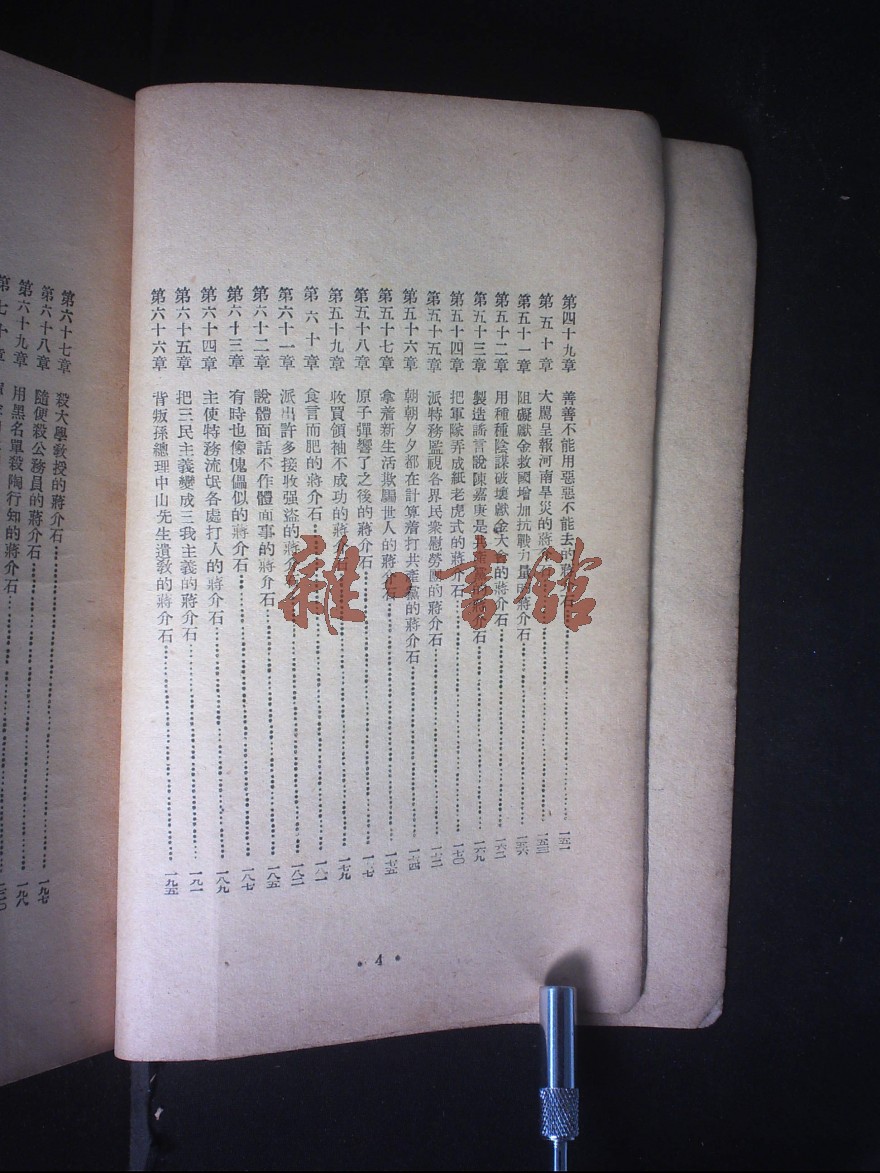 第四十九章 善善不能用惡惡不能去的蔣介石 一五一
第五十章 大罵呈報河南旱災的蔣介石 一五三
第五十一章 阻礙獻金救國增加抗戰力量的蔣介石 一五六
第五十二章 用種種陰謀破壞獻金大會的蔣介石 一六二
第五十三章 製造謠言說陳嘉庚是共產黨的蔣介石 一六九
第五十四章 把軍隊弄成紙老虎式的蔣介石 一七〇
第五十五章 派特務監視各界民衆慰勞團的蔣介石 一七二
第五十六章 朝朝夕夕都在計算着打共產黨的蔣介石 一七四
第五十七章 拿着新生活欺騙世人的蔣介石 一七五
第五十八章 原子彈響了之後的蔣介石 一七七
第五十九章 收買領袖不成功的蔣介石 一七九
第六十章 食言而肥的蔣介石 一八一
第六十一章 派出許多接收强盜的蔣介石 一八二
第六十二章 說體面話不作體面事的蔣介石 一八五
第六十三章 有時也像傀儡似的蔣介石 一八七
第六十四章 主使特務流氓各處打人的蔣介石 一八九
第六十五章 把三民主義變成三我主義的蔣介石 一九一
第六十六章 背叛孫總理中山先生遺教的蔣介石 一九五
• 4 •
第六十七章 殺大學教授的蔣介石 一九七
第六十八章 隨便殺公務員的蔣介石 一九八
第六十九章 用黑名單殺陶行知的蔣介石
第七十章
雜·書館